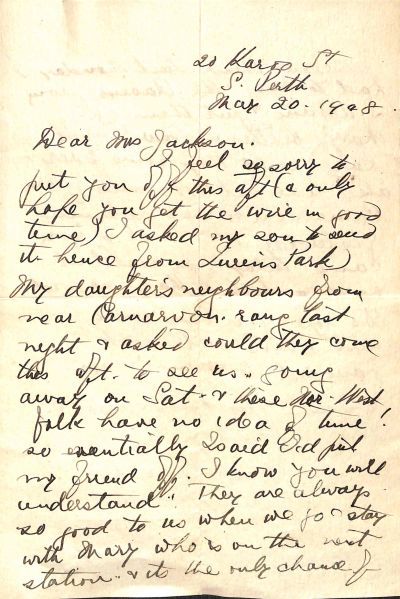 20 Karoo St
S. Perth
May 20. 1928.
Dear Mrs Jackson.
I feel so sorry to
put you off this aft (& only
hope you get the wire in good
time) I asked my son to send
it hence from Queens Park
My daughter's neighbours from
near Carnarvon. rang last
night & asked could they come
this aft. to see us. going
away on Sat. & these Nor-West
folk have no idea of time!
so eventually I said I'd put
my friend off. I know you will
understand". They are always
so good to us when we go & stay
with Mary who is on the next
station. & its the only chance of